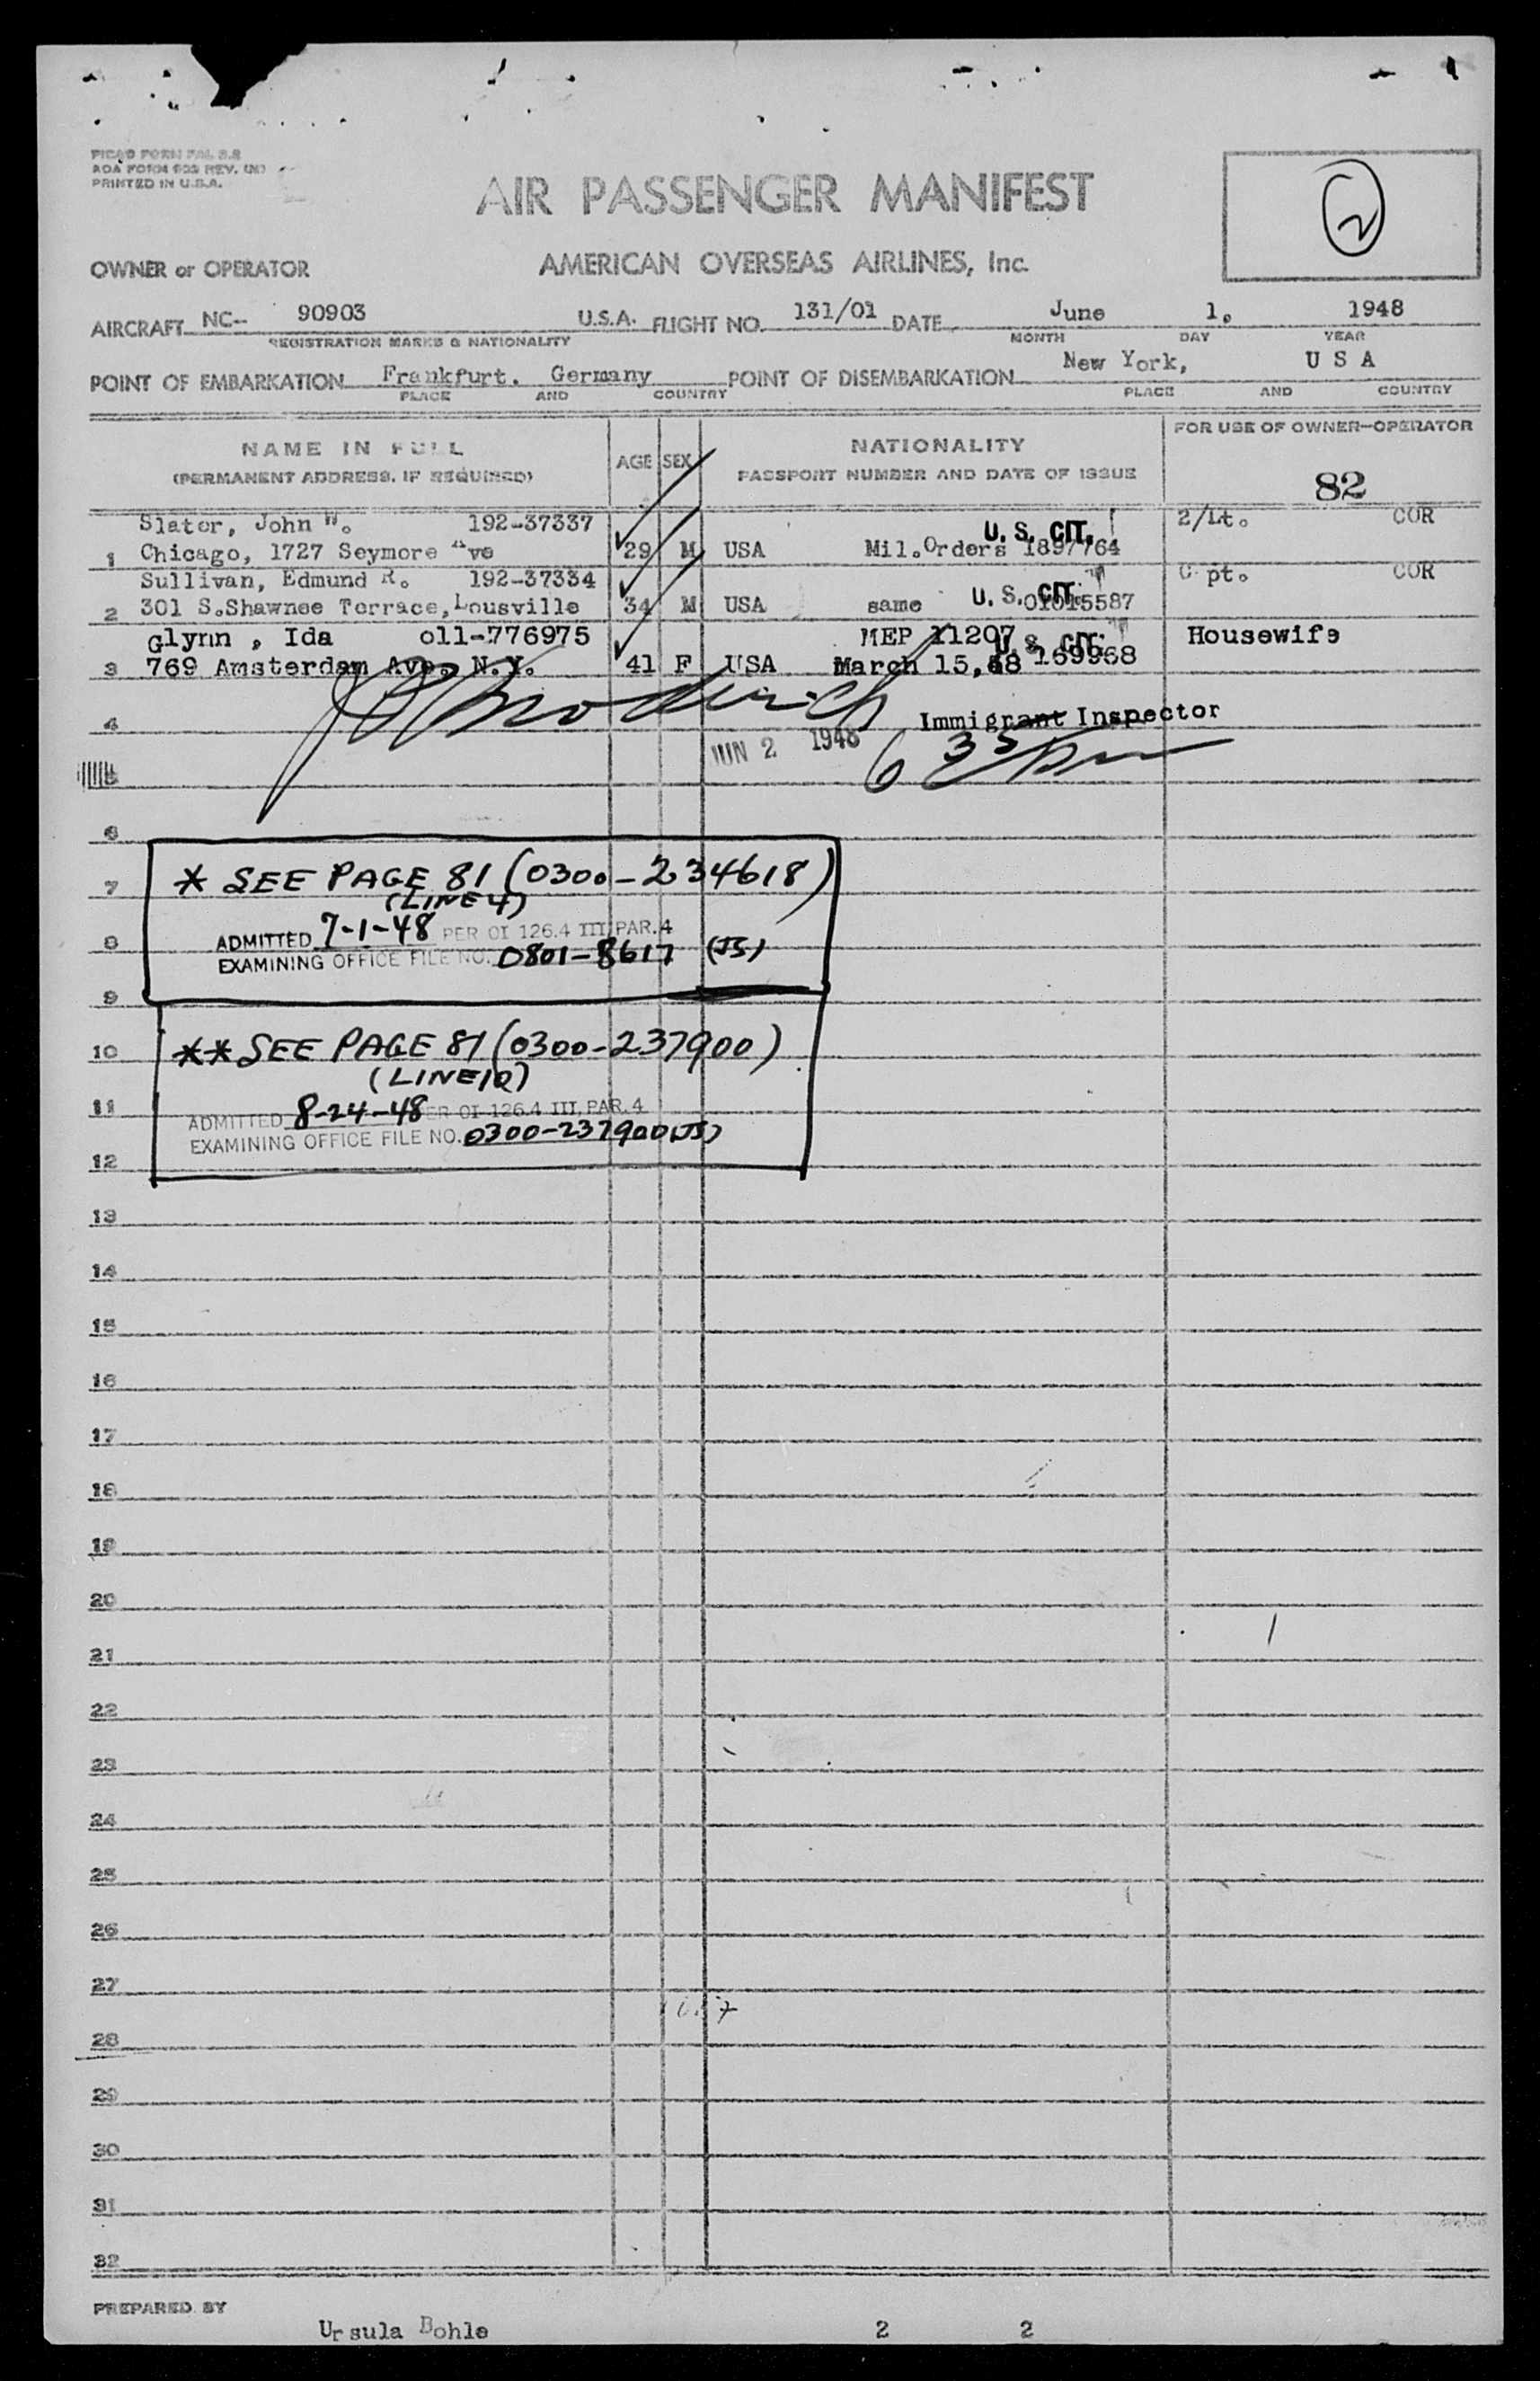 PICAO FORM FAL 2.2
AOA FORM 602 REV.
PRINTED IN U.S.A.
AIR PASSENGER MANIFEST
2
OWNER or OPERATOR AMERICAN OVERSEAS AIRLINES, Inc.
AIRCRAFT NC- 90903 U.S.A. FLIGHT NO. 131/01 DATE June 1, 1948
REGISTRATION MARKS & NATIONALITY MONTH DAY YEAR
POINT OF EMBARKATION Frankfurt. Germany POINT OF DISEMBARKATION New York, U S A
PLACE AND COUNTRY PLACE AND COUNTRY
NAME IN FULL AGE SEX NATIONALITY FOR USE OF OWNER-OPERATOR
(PERMANENT ADDRESS, IF REQUIRED) PASSPORT NUMBER AND DATE OF ISSUE 82
Slater, John W. 192-37337 U. S. CIT. 2/Lt. COR
1 Chicago, 1727 Seymore Ave 29 M USA Mil.Orders 1897764
Sullivan, Edmund R. 192-37334 U. S. CIT. C pt. COR
2 301 S.Shawnee Terrace, Lousville 34 M USA same 01015587
Glynn , Ida 011-776975 MEP 11207 U. S. CIT. Housewife
3 769 Amsterdam Ave. N.Y. 41 F USA March 15,48 169968
4 Immigrant Inspector
JUN 2 1948
5
6
7 * SEE PAGE 81 (0300-234618)
(LINE 4)
8 ADMITTED 7-1-48 PER OI 126.4 III, PAR. 4
EXAMINING OFFICE FILE NO. 0801-8617 (JS)
9
10 ** SEE PAGE 81 (0300-237900)
(LINE 10)
11 ADMITTED 8-24-48 PER OI 126.4 III, PAR. 4
EXAMINING OFFICE FILE NO. 0300-237900 (JS)
12
13
14
15
16
17
18
19
20
21
22
23
24
25
26
27
28
29
30
31
32
PREPARED BY
Ursula Bohle 2 2